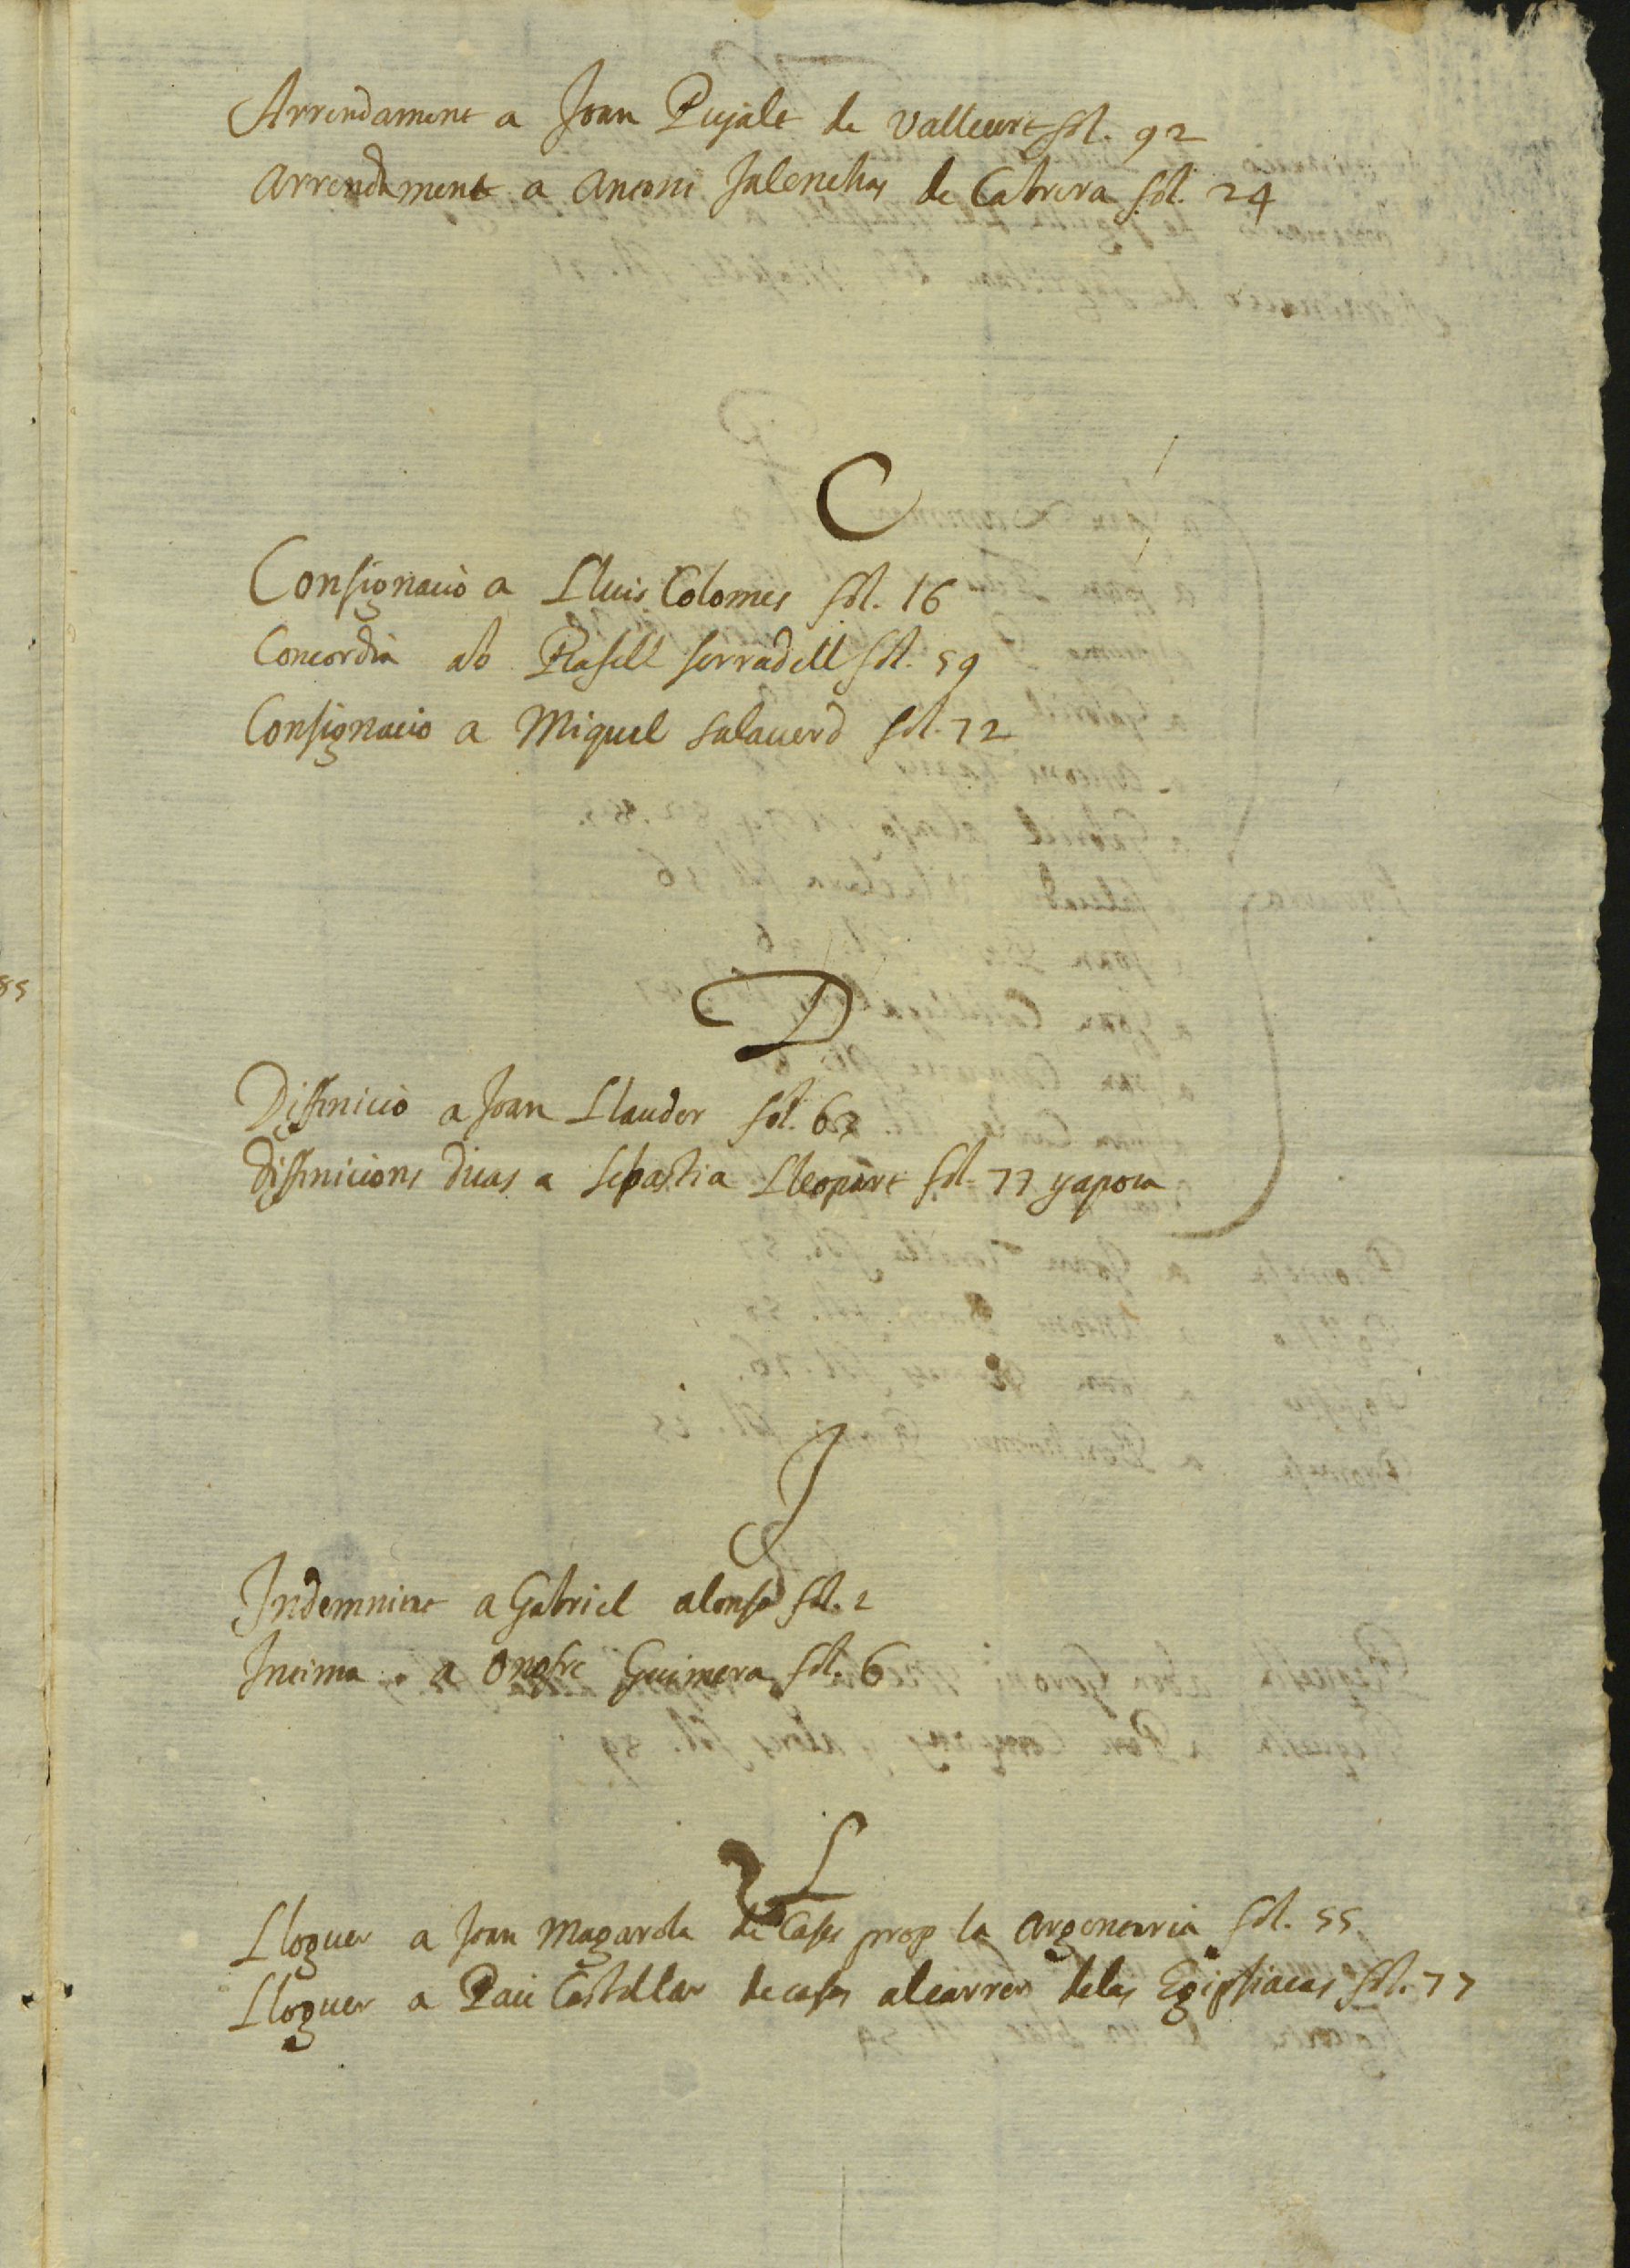 Arrendament a Joan Pujalt de Vallcurt fol. 92
Arrendament a Antoni Salenchas de Cabrera fol. 24
C
Consignació a Lluis Colomes fol. 16
Concordia ab Rafell Serradell fol. 59
Consignacio a Miquel Salauerd fol. 72
D
Diffinició a Joan Llauder fol. 63
Diffinicions duas a Sebastia Lleopart fol. 77 y apoca
J
Indemnitat a Gabriel Alonso fol. 2
Intima a Onofre Guimera fol. 6
L
Lloguer a Joan Magarola de Cases prop la Argenteria fol. 55
Lloguer a Pau Castellar de cases al carrer de las Egipsiacas fol. 77
85